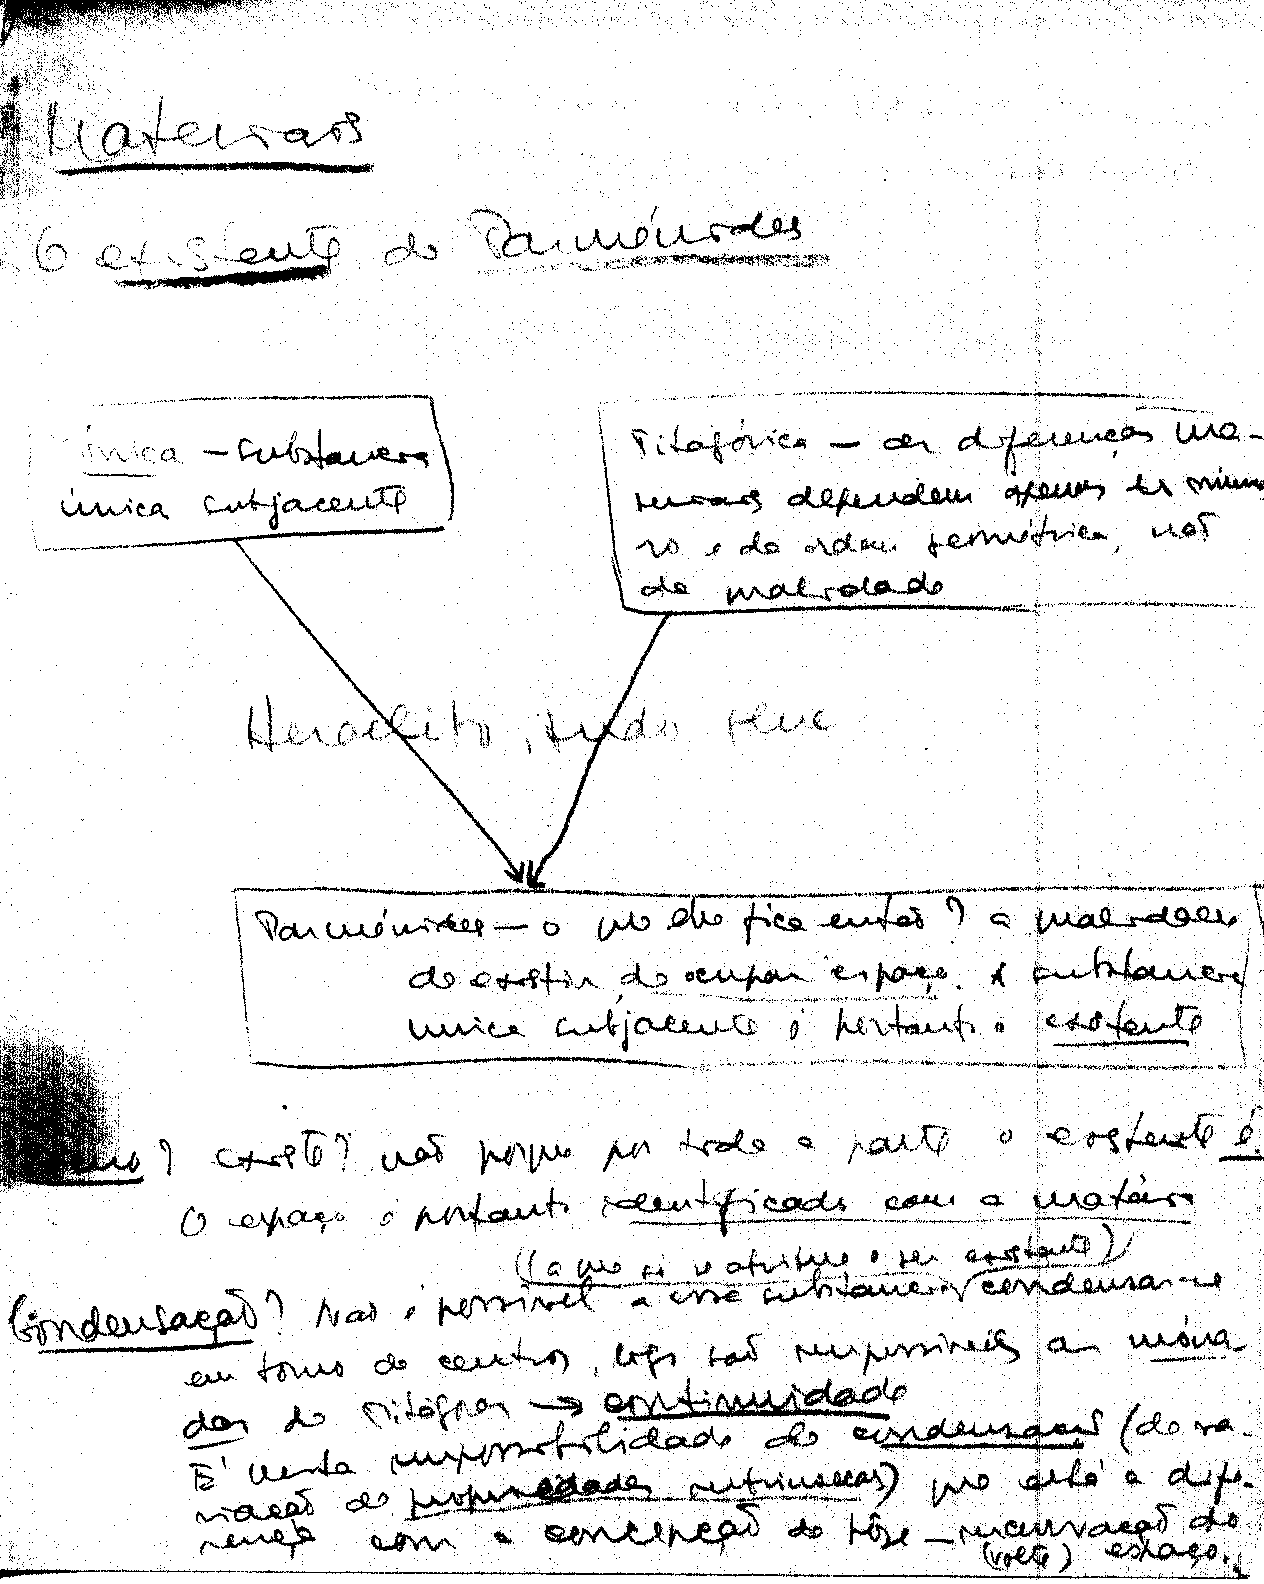 Materiais
O existente de Parménides
única – substancia
única subjacente
Pitagórica – as diferenças ma-
teriais dependem apenas do núme-
ro e da ordem geométrica, não
da qualidade
Heraclito, tudo flue
Parménides – o que lhe fica então? a qualidade
de existir, de ocupar espaço. A substancia
unica subjacente é portanto o existente
? existe? não porque por toda a parte o existente é.
O espaço é portanto identificado com a matéria
(a que se atribue o ser existente)
Condensação? Não é possivel a essa substancia condensar-se
em torno de centros, logo são impossíveis as móna-
das de Pitágoras → continuidade
É nesta impossibilidade de condensação (de va-
riação de propriedades intrinsecas) que está a dife-
rença com a concepção de hoje – encurvação do
(volte) espaço.